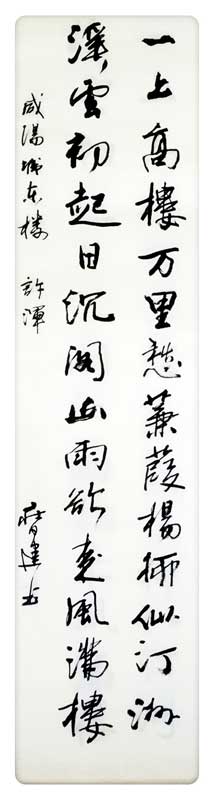 一上高樓万里愁蒹葭楊柳似汀洲
溪雲初起日沉閣山雨欲来風滿樓
咸陽城东楼 許渾